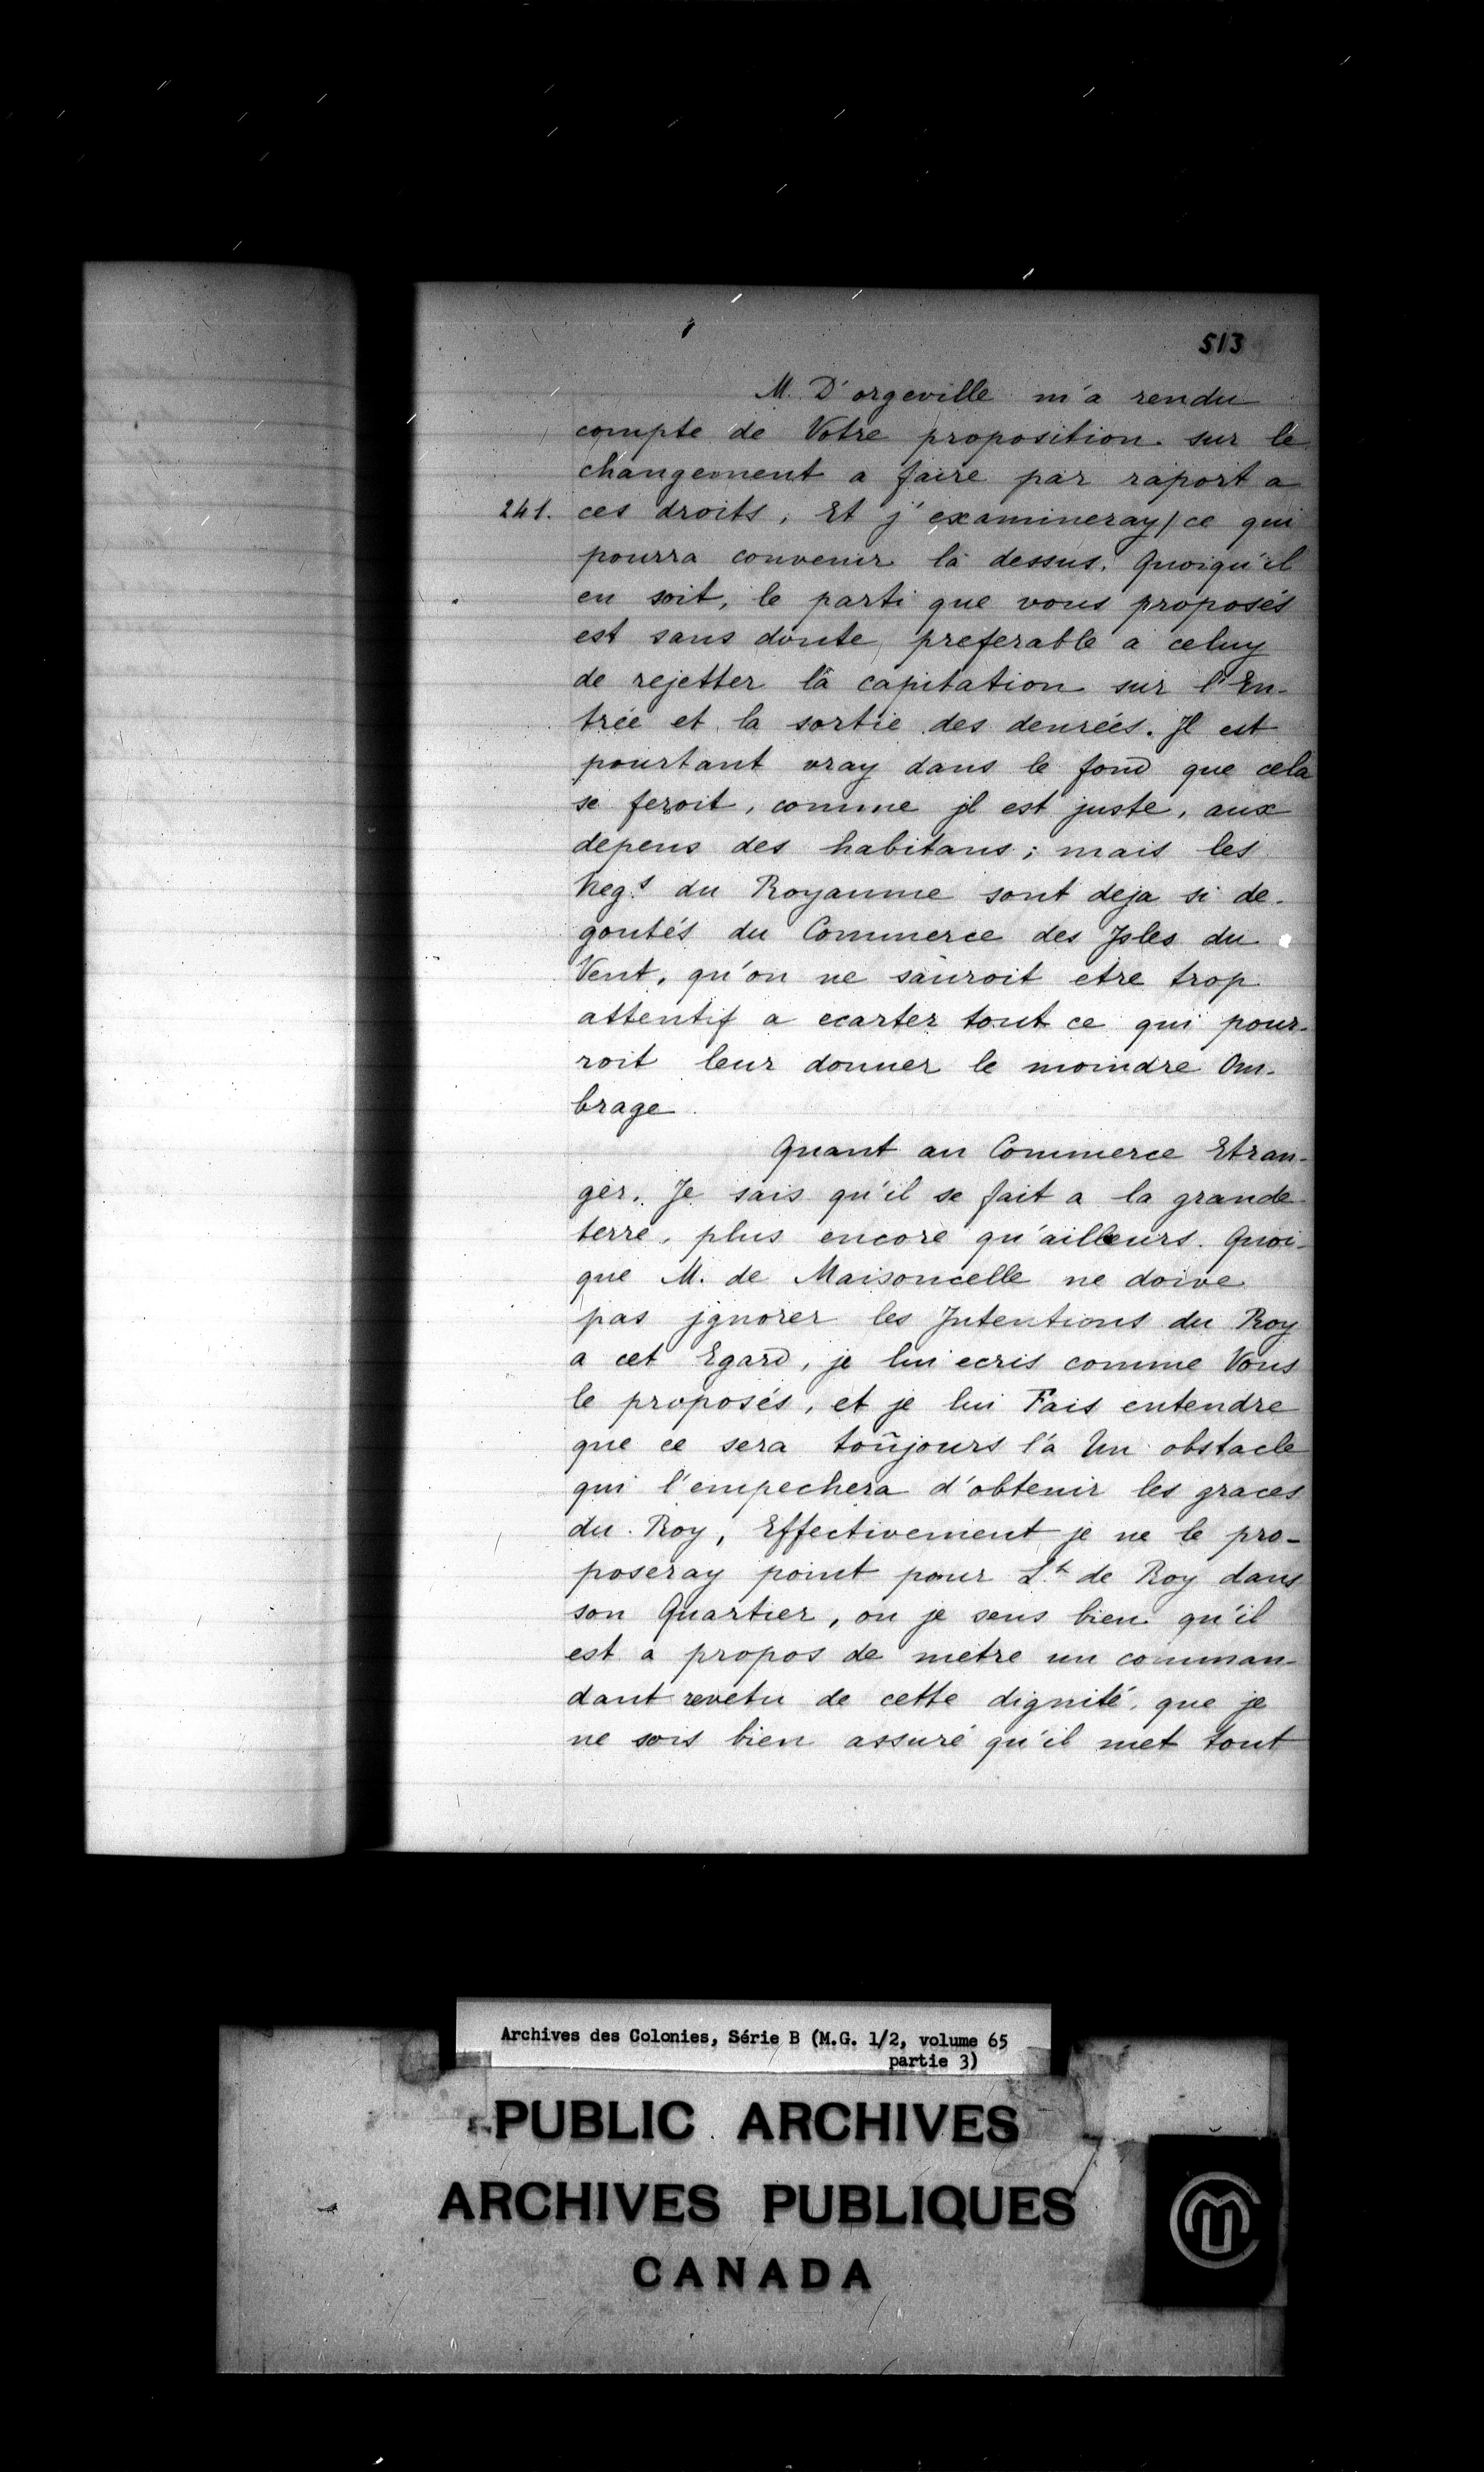 513
M. D'orgeville m'a rendu
compte de Votre proposition sur le
changement a faire par raport a
241. ces droits, Et j'examineray/ce qui
pourra convenir là dessus. Quoiqu'il
en soit, le parti que vous proposés
est sans doute, preferable a celuy
de rejetter la capitation sur l'En-
trée et la sortie des denrées. Il est
pourtant vray dans le fond que cela
se feroit, comme jl est juste, aux
depens des habitans; mais les
Neg.s du Royaume sont deja si de-
goutés du Commerce des Jsles du
Vent, qu'on ne sauroit etre trop
attentif a ecarter tout ce qui pour-
roit leur donner le moindre Om-
brage
Quant au Commerce Etran-
ger. Je sais qu'il se fait a la grande
terre, plus encore qu'ailleurs. Quoi-
que M. de Maisoncelle ne doive
pas jgnorer les Jntentions du Roy
a cet Egard, je lui ecris comme Vous
le proposés, et je lui Fais entendre
que ce sera toûjours là Un obstacle
qui l'empechera d'obtenir les graces
du Roy, Effectivement je ne le pro-
poseray point pour L.t de Roy dans
son Quartier, ou je sens bien qu'il
est a propos de metre un comman-
dant revetu de cette dignité, que je
ne sois bien assuré qu'il met tout
Archives des Colonies, Série B (M.G. 1/2, volume 65
partie 3)
PUBLIC ARCHIVES
ARCHIVES PUBLIQUES
CANADA